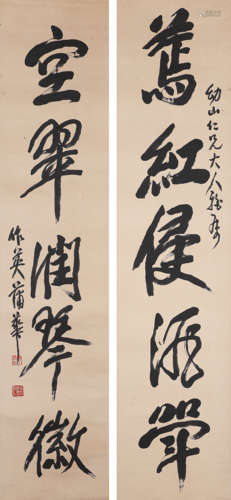 蔫紅侵酒斝
幼山仁兄大人雅屬
空翠潤琴徽
作英蒲華